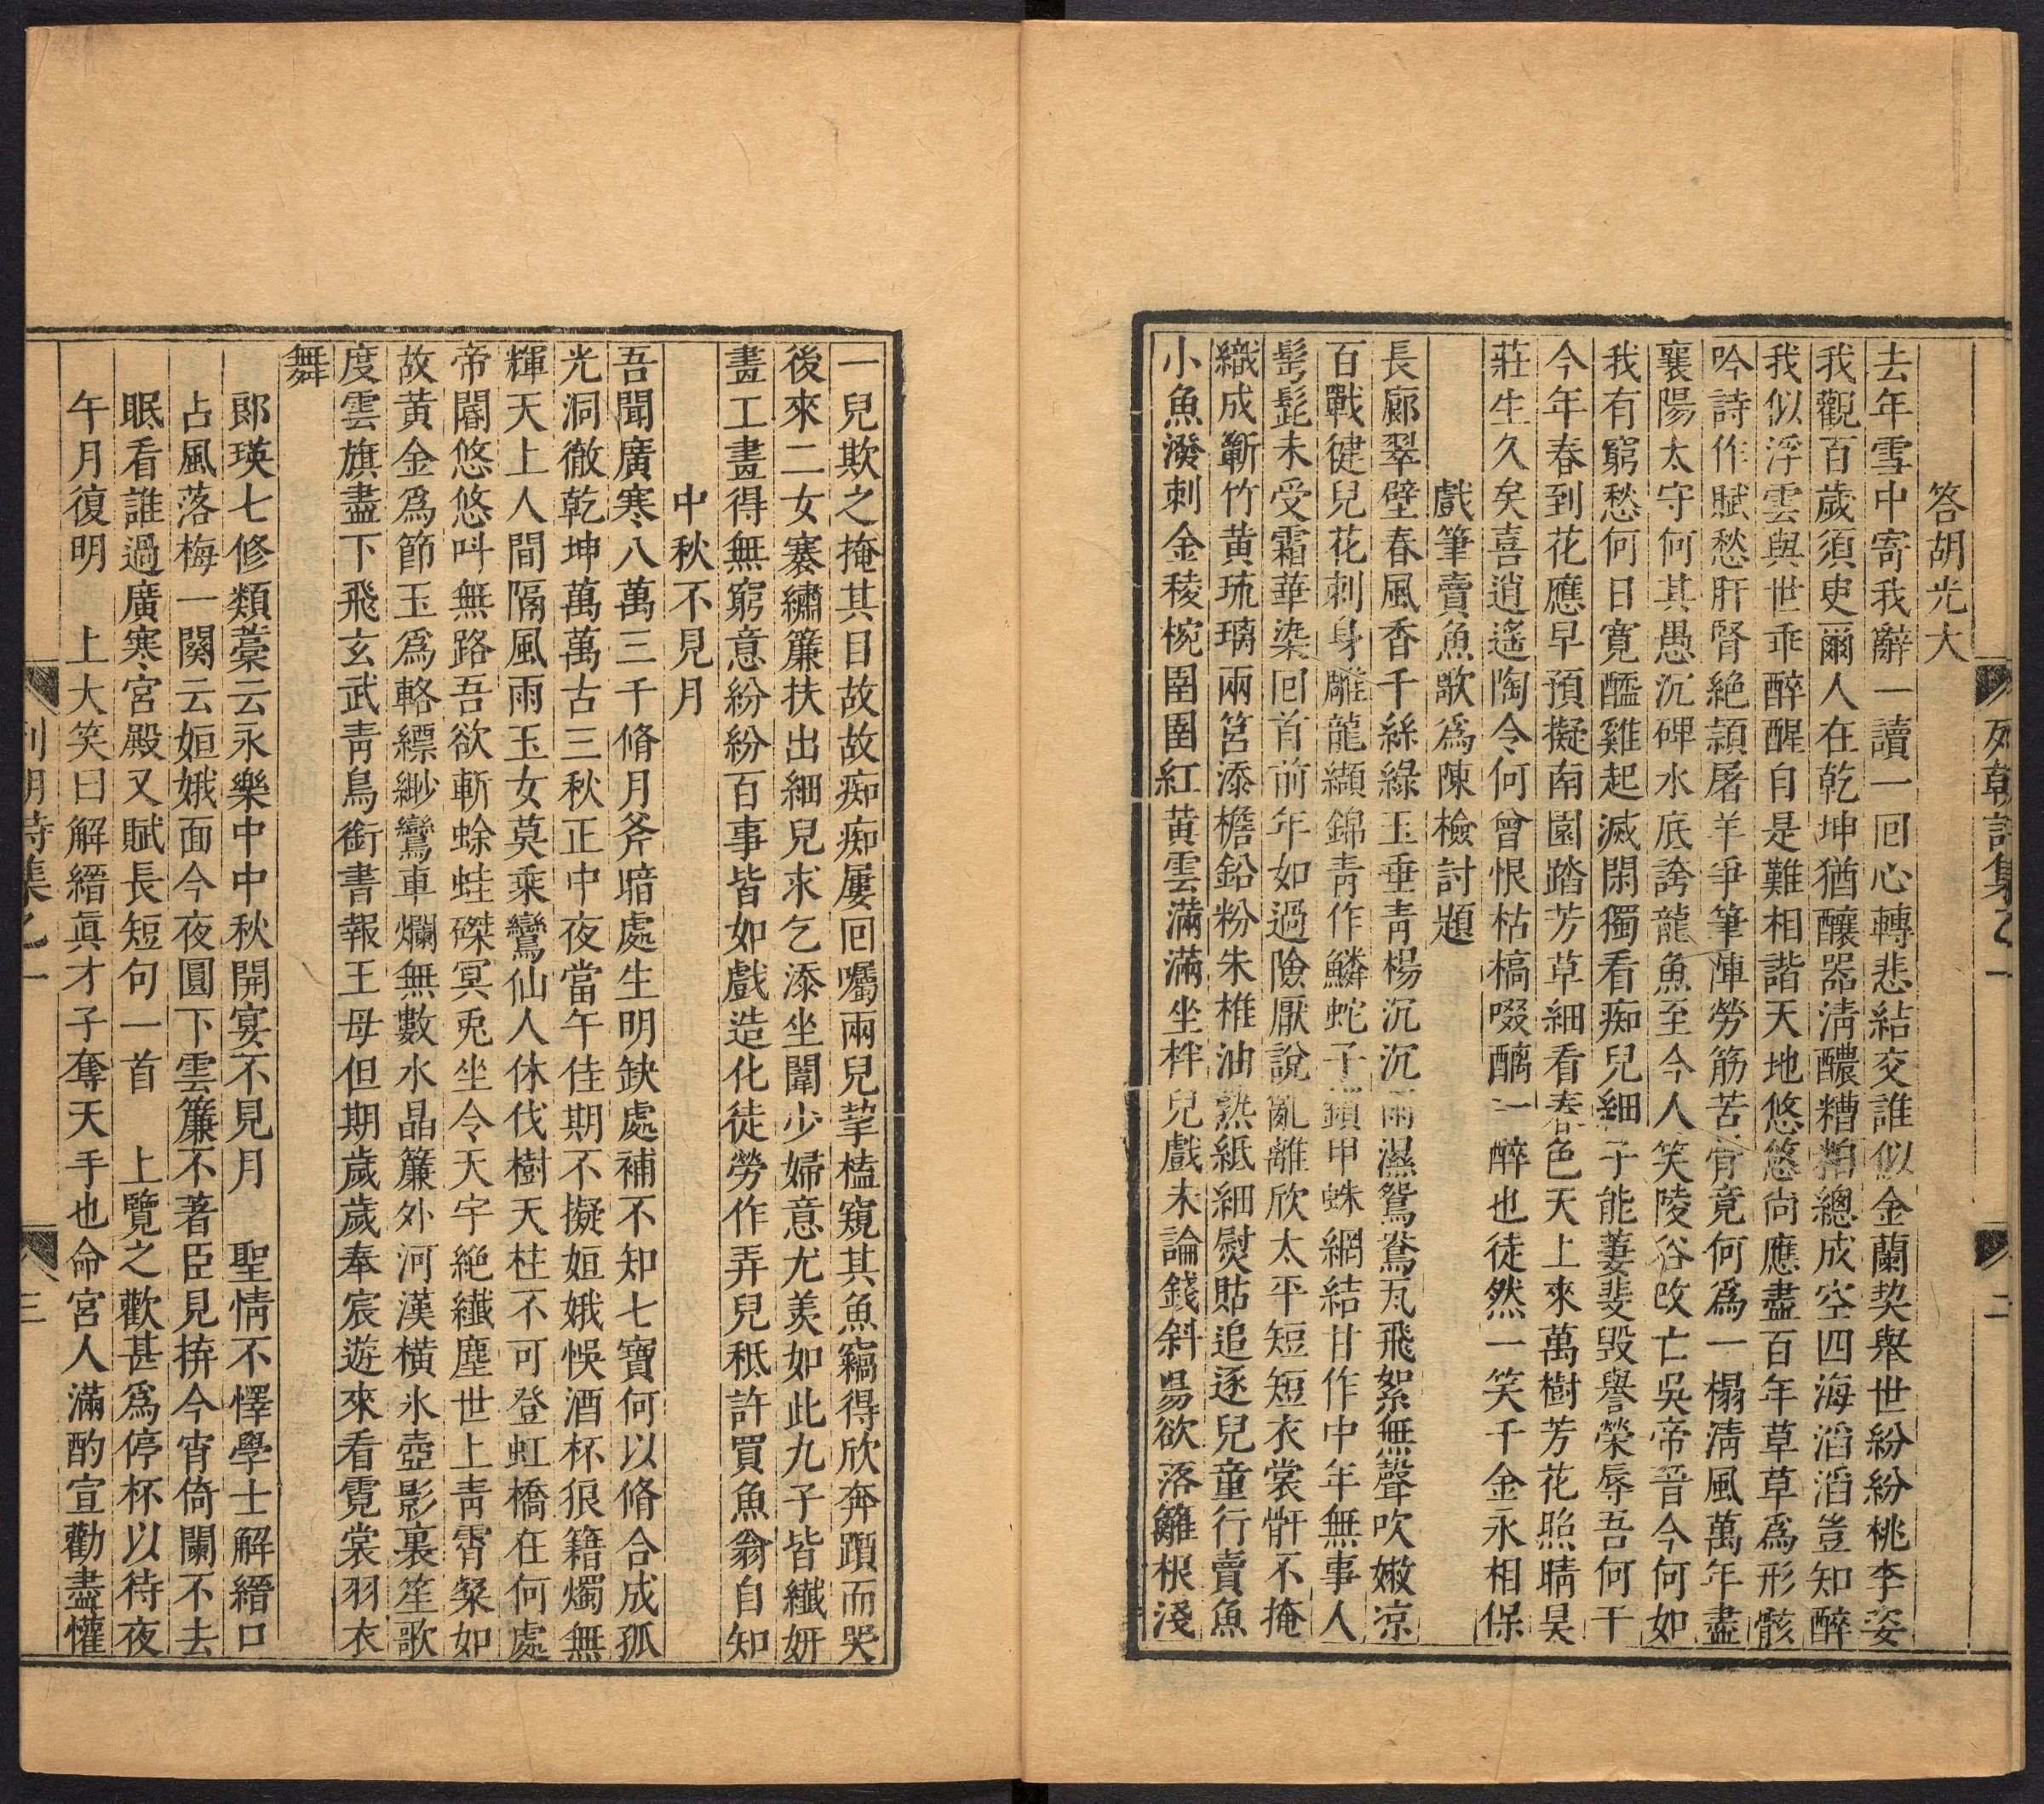 列朝詩集乙一
二
答胡光大
去年雪中寄我辭一讀一囘心轉悲結交誰似金蘭契舉世紛紛桃李姿
我觀百歲須臾爾人在乾坤猶釀器淸醲糟粕總成空四海滔滔豈知醉
我似浮雲與世乖醉醒自是難相諧天地悠悠尙應盡百年草草爲形骸
吟詩作賦愁肝腎絶頴屠羊爭筆陣勞筋苦骨竟何爲一榻淸風萬年盡
襄陽太守何其愚沉碑水底誇龍魚至今人笑陵谷改亡吳帝晉今何如
我有窮愁何日寬醯雞起滅閑獨看痴兒細子能萋斐毀譽榮辱吾何干
今年春到花應早預擬南園踏芳草細看春色天上來萬樹芳花照晴昊
莊生久矣喜逍遙陶令何曾恨枯槁啜醨一醉也徒然一笑千金永相保
戲筆賣魚歌爲陳檢討題
長廊翠壁春風香千絲綠玉垂靑楊沉沉雨濕鴛鴦瓦飛絮無聲吹嫩凉
百戰健兒花刺身雕龍纈錦靑作鱗蛇子鎖甲蛛網結甘作中年無事人
髣髴未受霜華染囘首前年如過險厭說亂離欣太平短短衣裳骭不掩
織成蘄竹黃琉璃兩筥添檐鉛粉朱椎油熟紙細熨貼追逐兒童行賣魚
小魚潑刺金稜椀圉圉紅黃雲滿滿坐柈兒戲未論錢斜昜欲落籬根淺
一兒欺之掩其目故故痴痴屢囘矚兩兒挈榼窺其魚竊得欣奔躓而哭
後來二女褰繡簾扶出細兒求乞添坐闈少婦意尤羙如此九子皆纖姸
畫工畫得無窮意紛紛百事皆如戲造化徒勞作弄兒秖許買魚翁自知
中秋不見月
吾聞廣寒八萬三千脩月斧暗處生明缺處補不知七寶何以脩合成孤
光洞徹乾坤萬萬古三秋正中夜當午佳期不擬姮娥悞酒杯狠籍燭無
輝天上人間隔風雨玉女莫乘鸞仙人休伐樹天柱不可登虹橋在何處
帝閽悠悠叫無路吾欲斬蜍蛙磔冥兎坐令天宇絶纎塵世上靑霄粲如
故黃金爲節玉爲輅縹緲鸞車爛無數水晶簾外河漢橫氷壺影裏笙歌
度雲旗盡下飛玄武靑鳥銜書報王母但期歲歲奉宸遊來看霓裳羽衣
舞
郎瑛七修類藁云永樂中中秋開宴不見月　聖情不懌學士解縉口
占風落梅一闋云姮娥面今夜圓下雲簾不著臣見拚今宵倚闌不去
眠看誰過廣寒宮殿又賦長短句一首　上覽之歡甚爲停杯以待夜
午月復明　上大笑曰解縉眞才子奪天手也命宮人滿酌宣勸盡懽
列朝詩集乙一
三